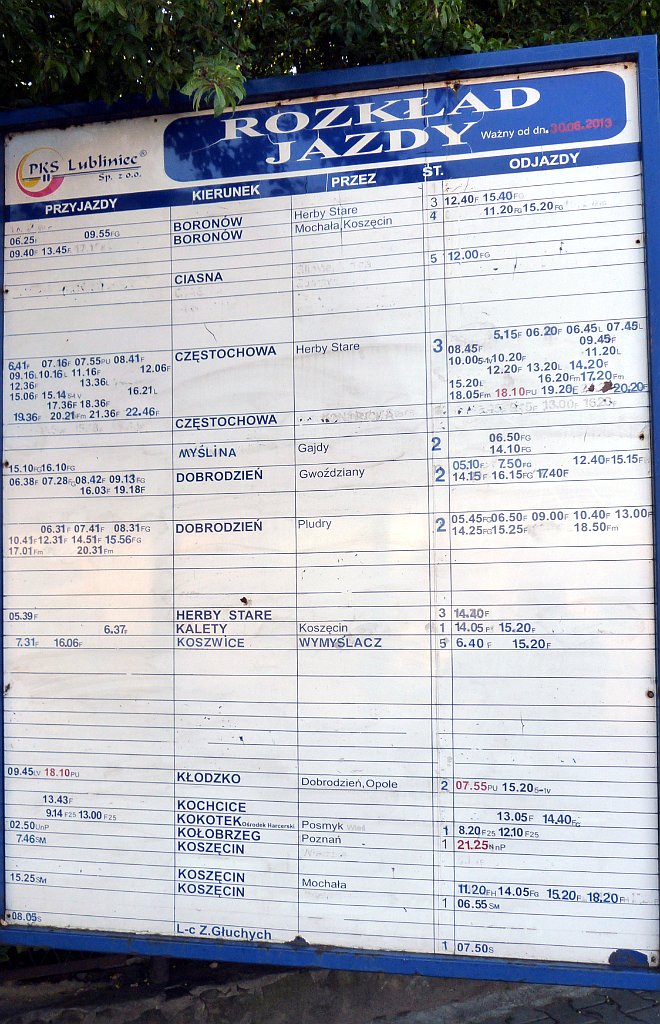 ROZKŁAD
JAZDY Ważny od dn. 30.06.2013
PKS Lubliniec®
Sp. z o.o.
PRZYJAZDY KIERUNEK PRZEZ ST. ODJAZDY
3 12.40F 15.40FG
06.25F 09.55FG BORONÓW Herby Stare 4 11.20FG 15.20FG
09.40F 13.45F BORONÓW Mochała,Koszęcin
CIASNA 5 12.00FG
5.15F 06.20F 06.45L 07.45L
6.41F 07.16F 07.55PU 08.41F CZĘSTOCHOWA Herby Stare 3 08.45F 09.45F
09.16L 10.16L 11.16F 12.06F 10.00 10.20F 11.20L
12.36F 13.36L 12.20F 13.20L 14.20F
15.06F 15.14 16.21L 15.20L 16.20Fm 17.20Fm
17.36F 18.36F 18.05Fm 18.10PU 19.20F 20.20F
19.36F 20.21Fm 21.36F 22.46F
CZĘSTOCHOWA
15.10FG 16.10FG MYŚLINA Gajdy 2 06.50FG
14.10FG
06.38F 07.28FG 08.42F 09.13FG DOBRODZIEŃ Gwoździany 2 05.10F 7.50FG 12.40F 15.15F
16.03F 19.18F 14.15F 16.15FG 17.40F
06.31F 07.41F 08.31FG DOBRODZIEŃ Pludry 2 05.45FG 06.50F 09.00F 10.40F 13.00F
10.41F 12.31F 14.51F 15.56FG 14.25FG 15.25F 18.50Fm
17.01Fm 20.31Fm
05.39F HERBY STARE 3 14.40F
6.37F KALETY Koszęcin 1 14.05 15.20F
7.31F 16.06F KOSZWICE WYMYŚLACZ 5 6.40F 15.20F
09.45LV 18.10PU KŁODZKO Dobrodzień,Opole 2 07.55PU 15.20
13.43F KOCHCICE 13.05F 14.40FG
9.14F25 13.00F25 KOKOTEK Ośrodek Harcerski Posmyk 1 8.20F25 12.10F25
02.50UnP KOŁOBRZEG Poznań 1 21.25NnP
7.46SM KOSZĘCIN
KOSZĘCIN 11.20FH 14.05FG 15.20F 18.20FH
15.25SM KOSZĘCIN Mochała 1 06.55SM
08.05S L-c Z.Głuchych 1 07.50S